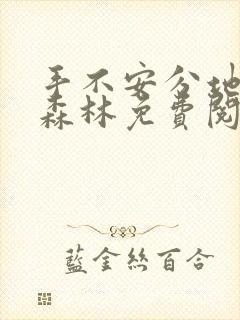 手不安分地
森林免费阅
藍金絲百合